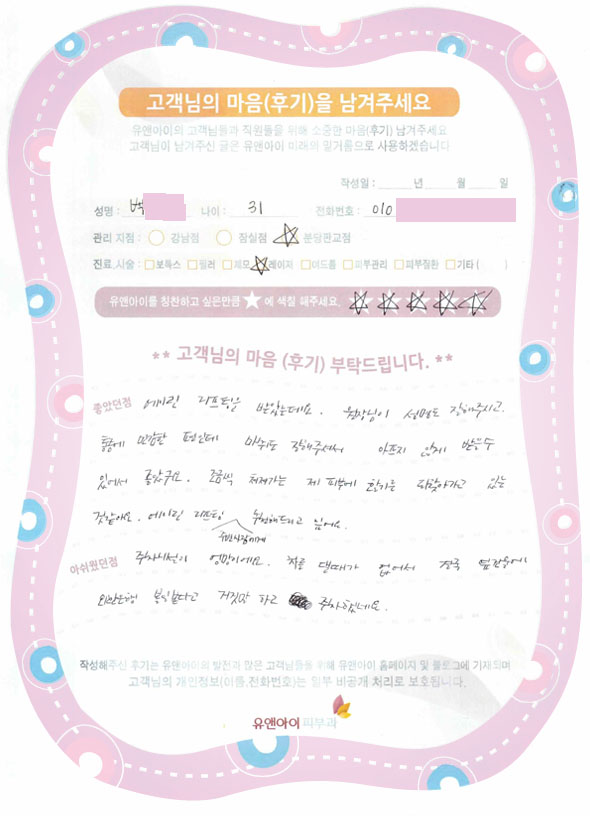 고객님의 마음(후기)을 남겨주세요
유앤아이의 고객님들과 직원들을 위해 소중한 마음(후기) 남겨주세요
고객님이 남겨주신 글은 유앤아이 미래의 밑거름으로 사용하겠습니다
작성일 : 년 월 일
성명 : 박 나이 : 31 전화번호 : 010
관리 지점 : 강남점 잠실점 분당판교점
진료,시술 : 보톡스 필러 제모 레이저 여드름 피부관리 피부질환 기타 ( )
유앤아이를 칭찬하고 싶은만큼 ★ 에 색칠 해주세요.
** 고객님의 마음 (후기) 부탁드립니다. **
좋았던점 에어린 리프팅을 받았는데요. 원장님이 설명도 잘해주시고.
통증에 민감한 편인데 마취도 잘해주셔서 아프지 않게 받을수
있어서 좋았구요. 조금씩 처져가는 제 피부에 활기를 되찾아가고 있는
것같아요. 에어린 리프팅 추천해드리고 싶어요.
주변사람에게
아쉬웠던점 주차시설이 엉망이에요. 차를 댈때가 없어서 결국 옆건물에
외환은행 볼일있다고 거짓말 하고 주차했네요.
작성해주신 후기는 유앤아이의 발전과 많은 고객님들을 위해 유앤아이 홈페이지 및 블로그에 기재되며
고객님의 개인정보(이름,전화번호)는 일부 비공개 처리로 보호됩니다.
유앤아이 피부과